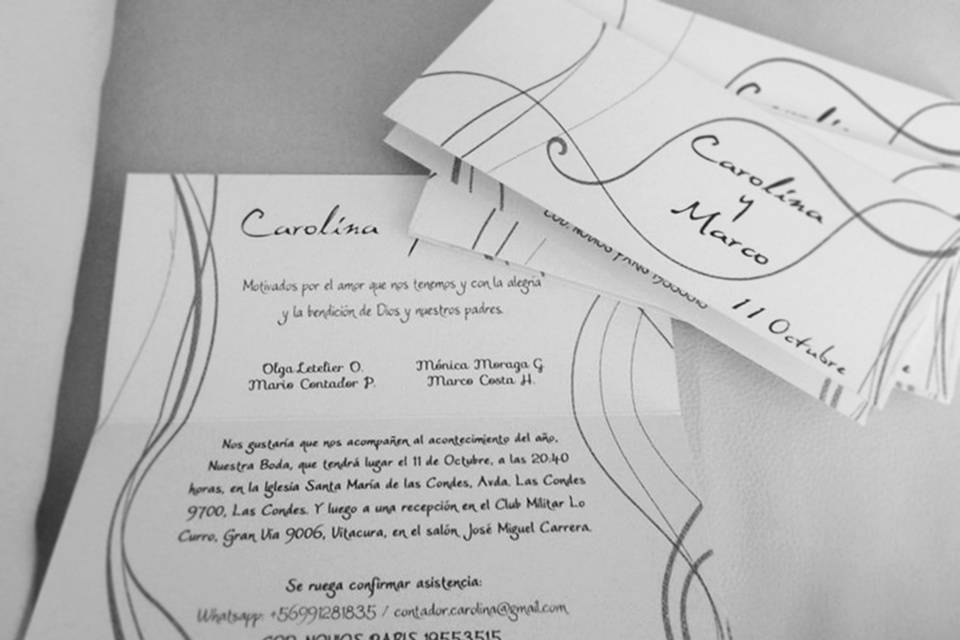 Carolina
Motivados por el amor que nos tenemos y con la alegría
y la bendición de Dios y nuestros padres.
Olga Letelier O.
Mario Contador P.
Mónica Moraga G
Marco Costa H.
Nos gustaría que nos acompañen al acontecimiento del año,
Nuestra Boda, que tendrá lugar el 11 de Octubre, a las 20:40
horas, en la Iglesia Santa María de las Condes, Avda. Las Condes
9700, Las Condes. Y luego a una recepción en el Club Militar Lo
Curro, Gran Vía 9006, Vitacura, en el salón José Miguel Carrera.
Se ruega confirmar asistencia:
Whatsapp: +56991281835 / contador.carolina@gmail.com
COD. NOVIOS PARIS 19553515
Carolina
y
Marco
11 Octubre
COD. NOVIOS PARIS